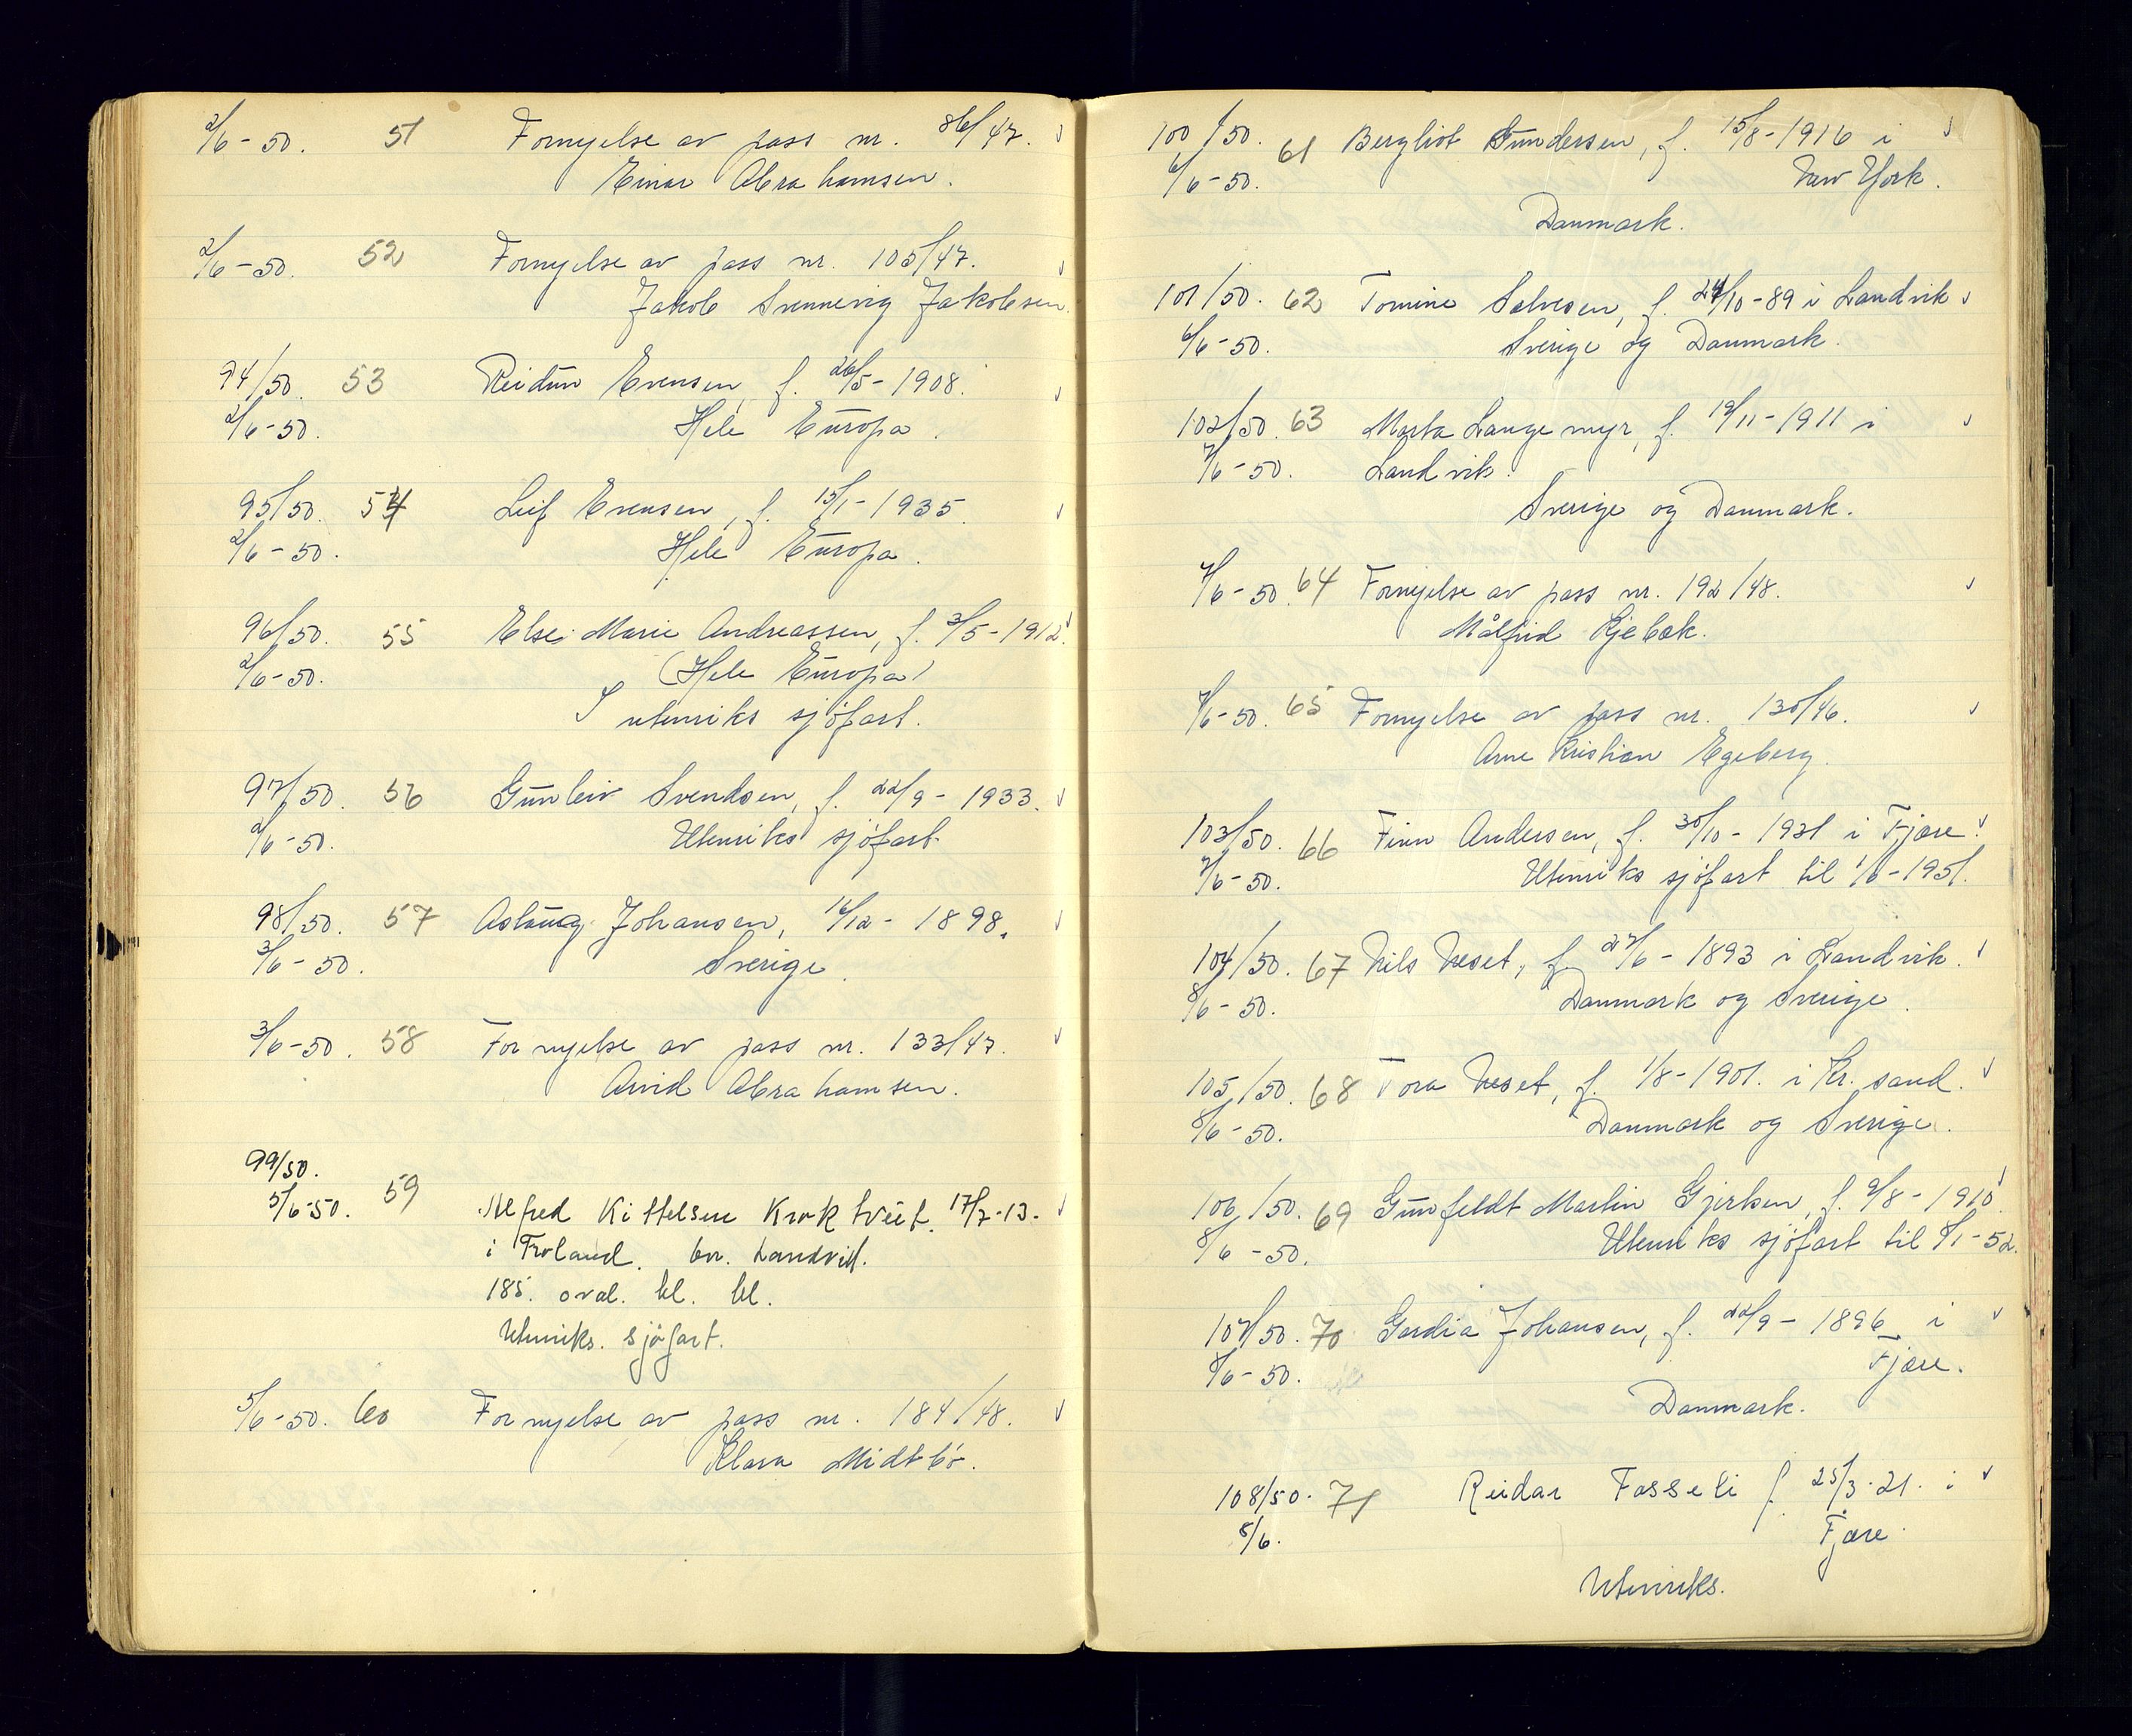 2/6-50. 51 Fornyelse av pass nr. 86/47.
Einar Abrahamsen.
2/6-50. 52 Fornyelse av pass nr. 105/47.
Jakob Svennevig Jakobsen.
94/50. 53 Reidun Evensen, f. 26/5-1908.
2/6-50. Hele Europa.
95/50. 54 Leif Evensen, f. 15/1-1935.
2/6-50. Hele Europa.
96/50. 55 Else Marie Andreassen, f. 3/5-1912.
2/6-50. (Hele Europa)
I utenriks sjöfart.
97/50. 56 Gunleiv Svendsen, f. 22/9-1933.
2/6-50. Utenriks sjöfart.
98/50. 57 Aslaug Johansen, 16/12-1898.
3/6-50. Sverige.
3/6-50. 58 Fornyelse av pass nr. 133/47.
Arvid Abrahamsen.
99/50.
5/6-50. 59 Alfred Kittelsen Kroktveit. 17/7-13.
i Froland. bor. Landvik.
185. oval. bl. bl.
Utenriks. sjöfart.
5/6-50. 60 Fornyelse av pass nr. 184/48.
Klara Midtbö.
100/50. 61 Bergliot Gundersen, f. 15/8-1916 i
6/6-50. New York.
Danmark.
101/50. 62 Tomine Salvesen, f. 24/10-89 i Landvik
6/6-50. Sverige og Danmark.
102/50. 63 Marta Langemyr, f. 19/11-1911 i
7/6-50. Landvik.
Sverige og Danmark.
7/6-50. 64 Fornyelse av pass nr. 192/48.
Målfrid Gjebæk.
7/6-50. 65 Fornyelse av pass nr. 130/46.
Arne Kristian Egeberg.
103/50. 66 Finn Andersen, f. 30/10-1931 i Fjære.
7/6-50. Utenriks sjöfart til 1/6-1951.
104/50. 67 Nils Neset, f. 27/6-1893 i Landvik.
8/6-50. Danmark og Sverige.
105/50. 68 Tora Neset, f. 1/8-1901. i Kr.sand.
8/6-50. Danmark og Sverige.
106/50. 69 Gunfeldt Martin Gjerksen, f. 9/8-1910
8/6-50. Utenriks sjöfart til 8/1-52.
107/50. 70 Gardia Johansen, f. 22/9-1896 i
8/6-50. Fjære.
Danmark.
108/50. 71 Reidar Fosseli f 25/3-21. i
8/6. Fjære.
Utenriks.